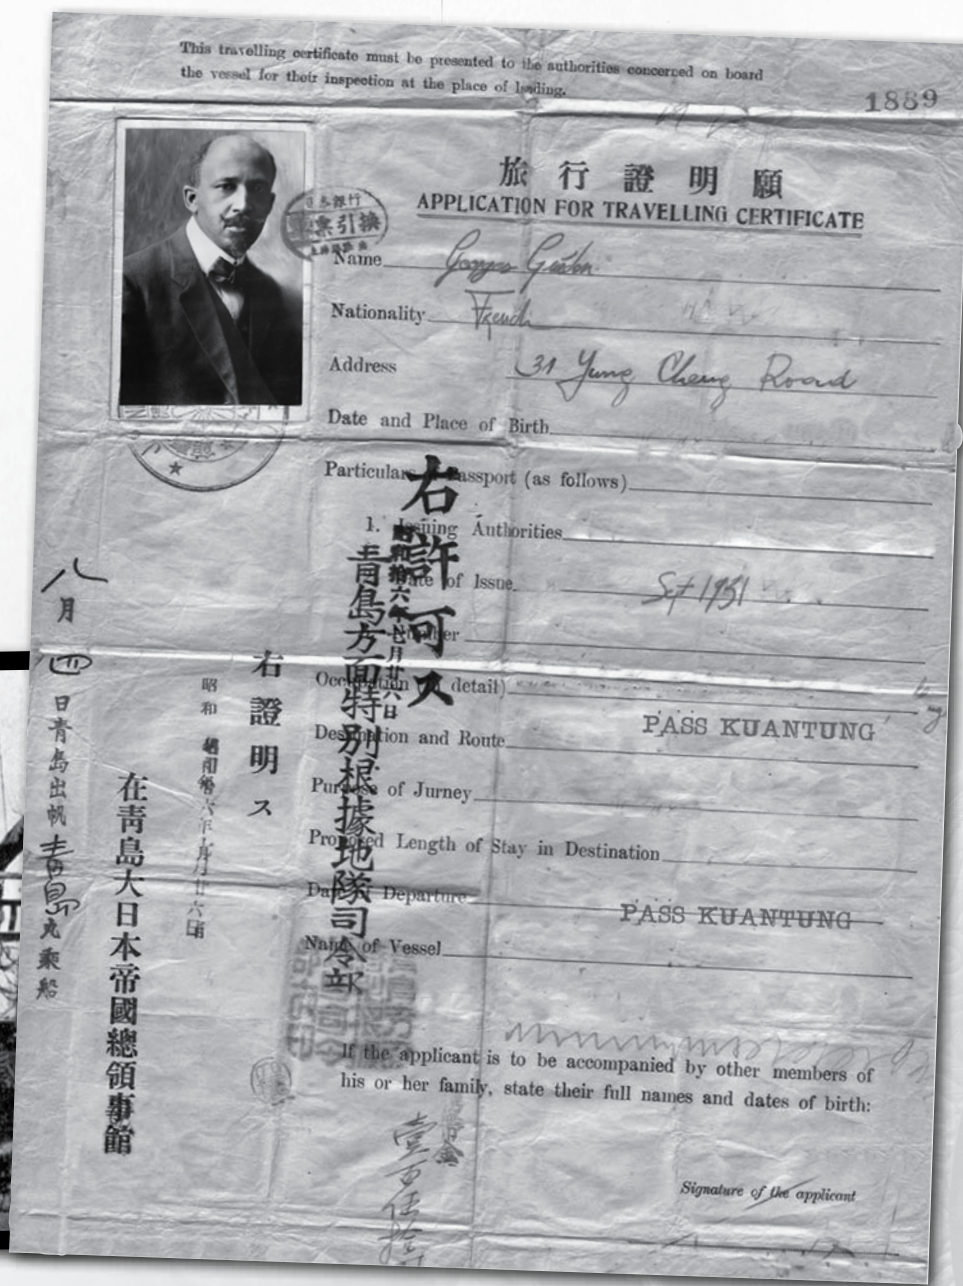 This travelling certificate must be presented to the authorities concerned on board
the vessel for their inspection at the place of landing.
1889
旅行證明願
APPLICATION FOR TRAVELLING CERTIFICATE
引換
Name Georges
Nationality French
Address 31 Yung Cheng Road
Date and Place of Birth
Particulars Passport (as follows)
1. Issuing Authorities
Date of Issue Sept 1931
Number
Occupation detail)
Destination and Route PASS KUANTUNG
Purpose of Jurney
Proposed Length of Stay in Destination
Date Departure PASS KUANTUNG
Name of Vessel
If the applicant is to be accompanied by other members of
his or her family, state their full names and dates of birth:
Signature of the applicant
右許可ス
昭和拾六年七月廿六日
青島方面特別根據地隊司令部
右證明ス
昭和
在青島大日本帝國總領事館
八月四日青島出帆青島丸乘船
壹百伍拾